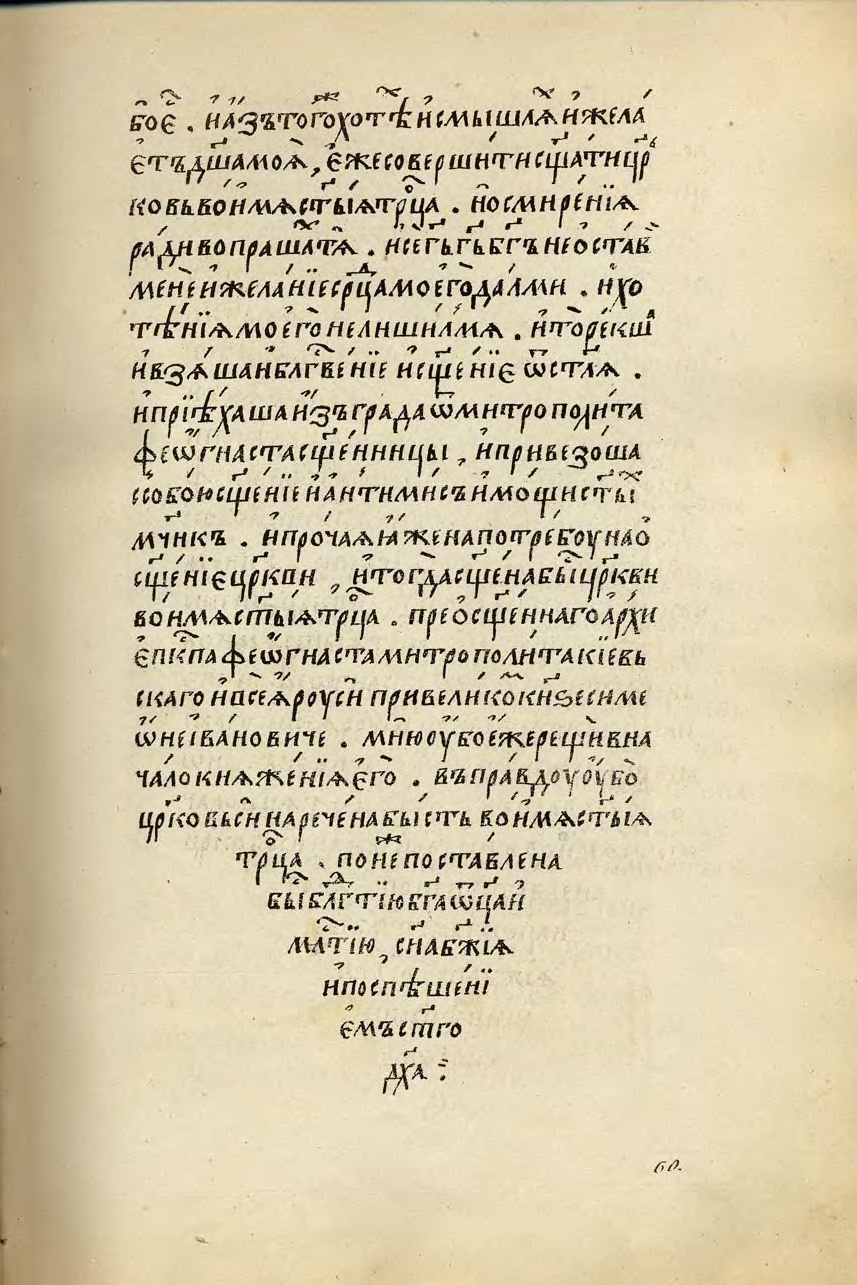 бо҃є . и҆ а҆́зъ того̀ хотѣ́и смышлѧ́ и҆ жела́
єтъ дш҃а моѧ̀ , є҆́же соверши́ти и҆ сщ҃а́ти цр҃
ковь во и҆́мѧ ст҃ы́ѧ трⷪ҇ца . но смире́нїѧ
ра́ди вопраша́ тѧ . и҆ сегѡ̀ гь҃ бг҃ъ не ѡ҆ста́в
менѐ и҆ жела́нїе срⷣца моего̀ да́л ми . и҆ хо
тѣ́нїѧ моего̀ не лиши́л мѧ . и҆ то̀ ре́кша
и҆ взѧ́ша блгⷭ҇ве́нїе и҆ сщ҃е́нїє ѿ ст҃лѧ .
и҆ прїѣ́хаша и҆зъ гра́да ѿ митрополи́та
феѡгна́ста сщ҃е́нницы , и҆ привезо́ша
с собо́ю сщ҃е́нїе и҆ а҆нтими́съ и҆ мо́щи ст҃ы́хⷯ
мч҃икъ . и҆ про́чаѧ ꙗ҆́же на потре́боу на ѡ
сщ҃е́нїє цр҃кви , и҆ тогда̀ сщ҃ена̀ бы́ цр҃кви
во и҆́мѧ ст҃ы́ѧ трⷪ҇ца . прео҆сщ҃е́ннаго а҆рхи
є҆пⷭ҇кпа феѡгна́ста митрополи́та кі́евь
скаго и҆ всеѧ̀ роусі́и при вели́ко кн҃ѕе симе
ѡ҆́не і҆ва́новиче . мню̀ оу҆́бо є҆́же рещѝ в на
ча́ло кнѧже́нїѧ є҆го̀ . въ пра́вдоу оу҆́бо
цр҃ковь сѝ нарече́на бы́сть во и҆́мѧ ст҃ы́ѧ
трⷪ҇ца , понеⷤ поста́влена
бы́ блгⷣтїю бг҃а ѻ҆ц҃а и҆
млⷭ҇тїю , сн҃а бж҃їѧ
и҆ поспѣше́нї
ємъ ст҃го
дх҃а :
60.